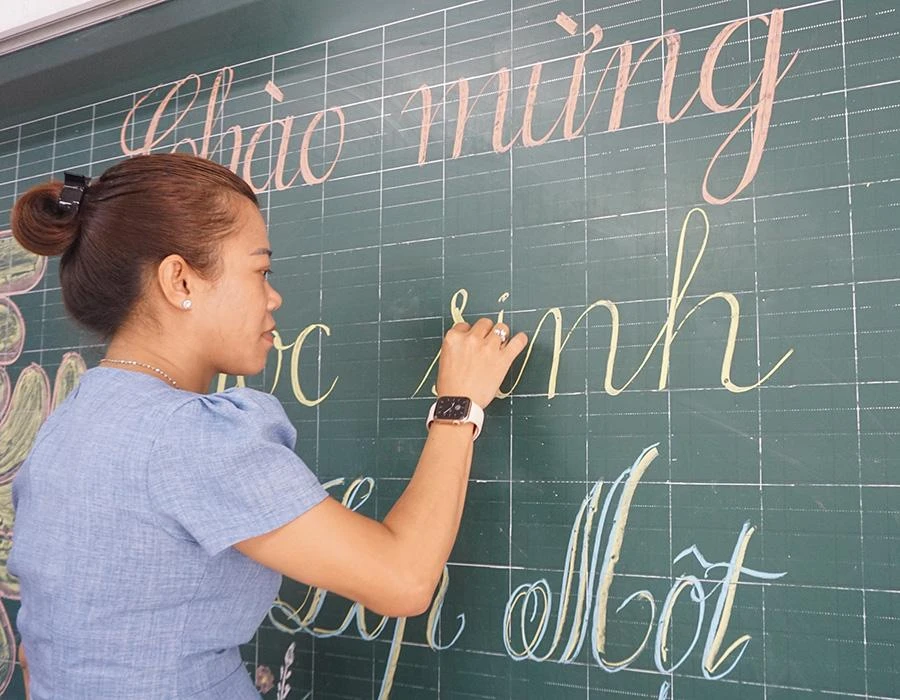 Chào mừng
học sinh
Lớp Một